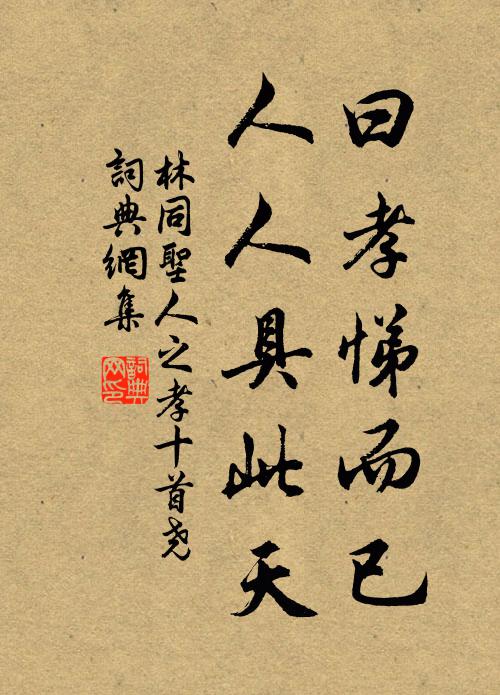 曰孝悌而已
人人具此天
林同聖人之孝十首堯
詞典網集
詞典網印